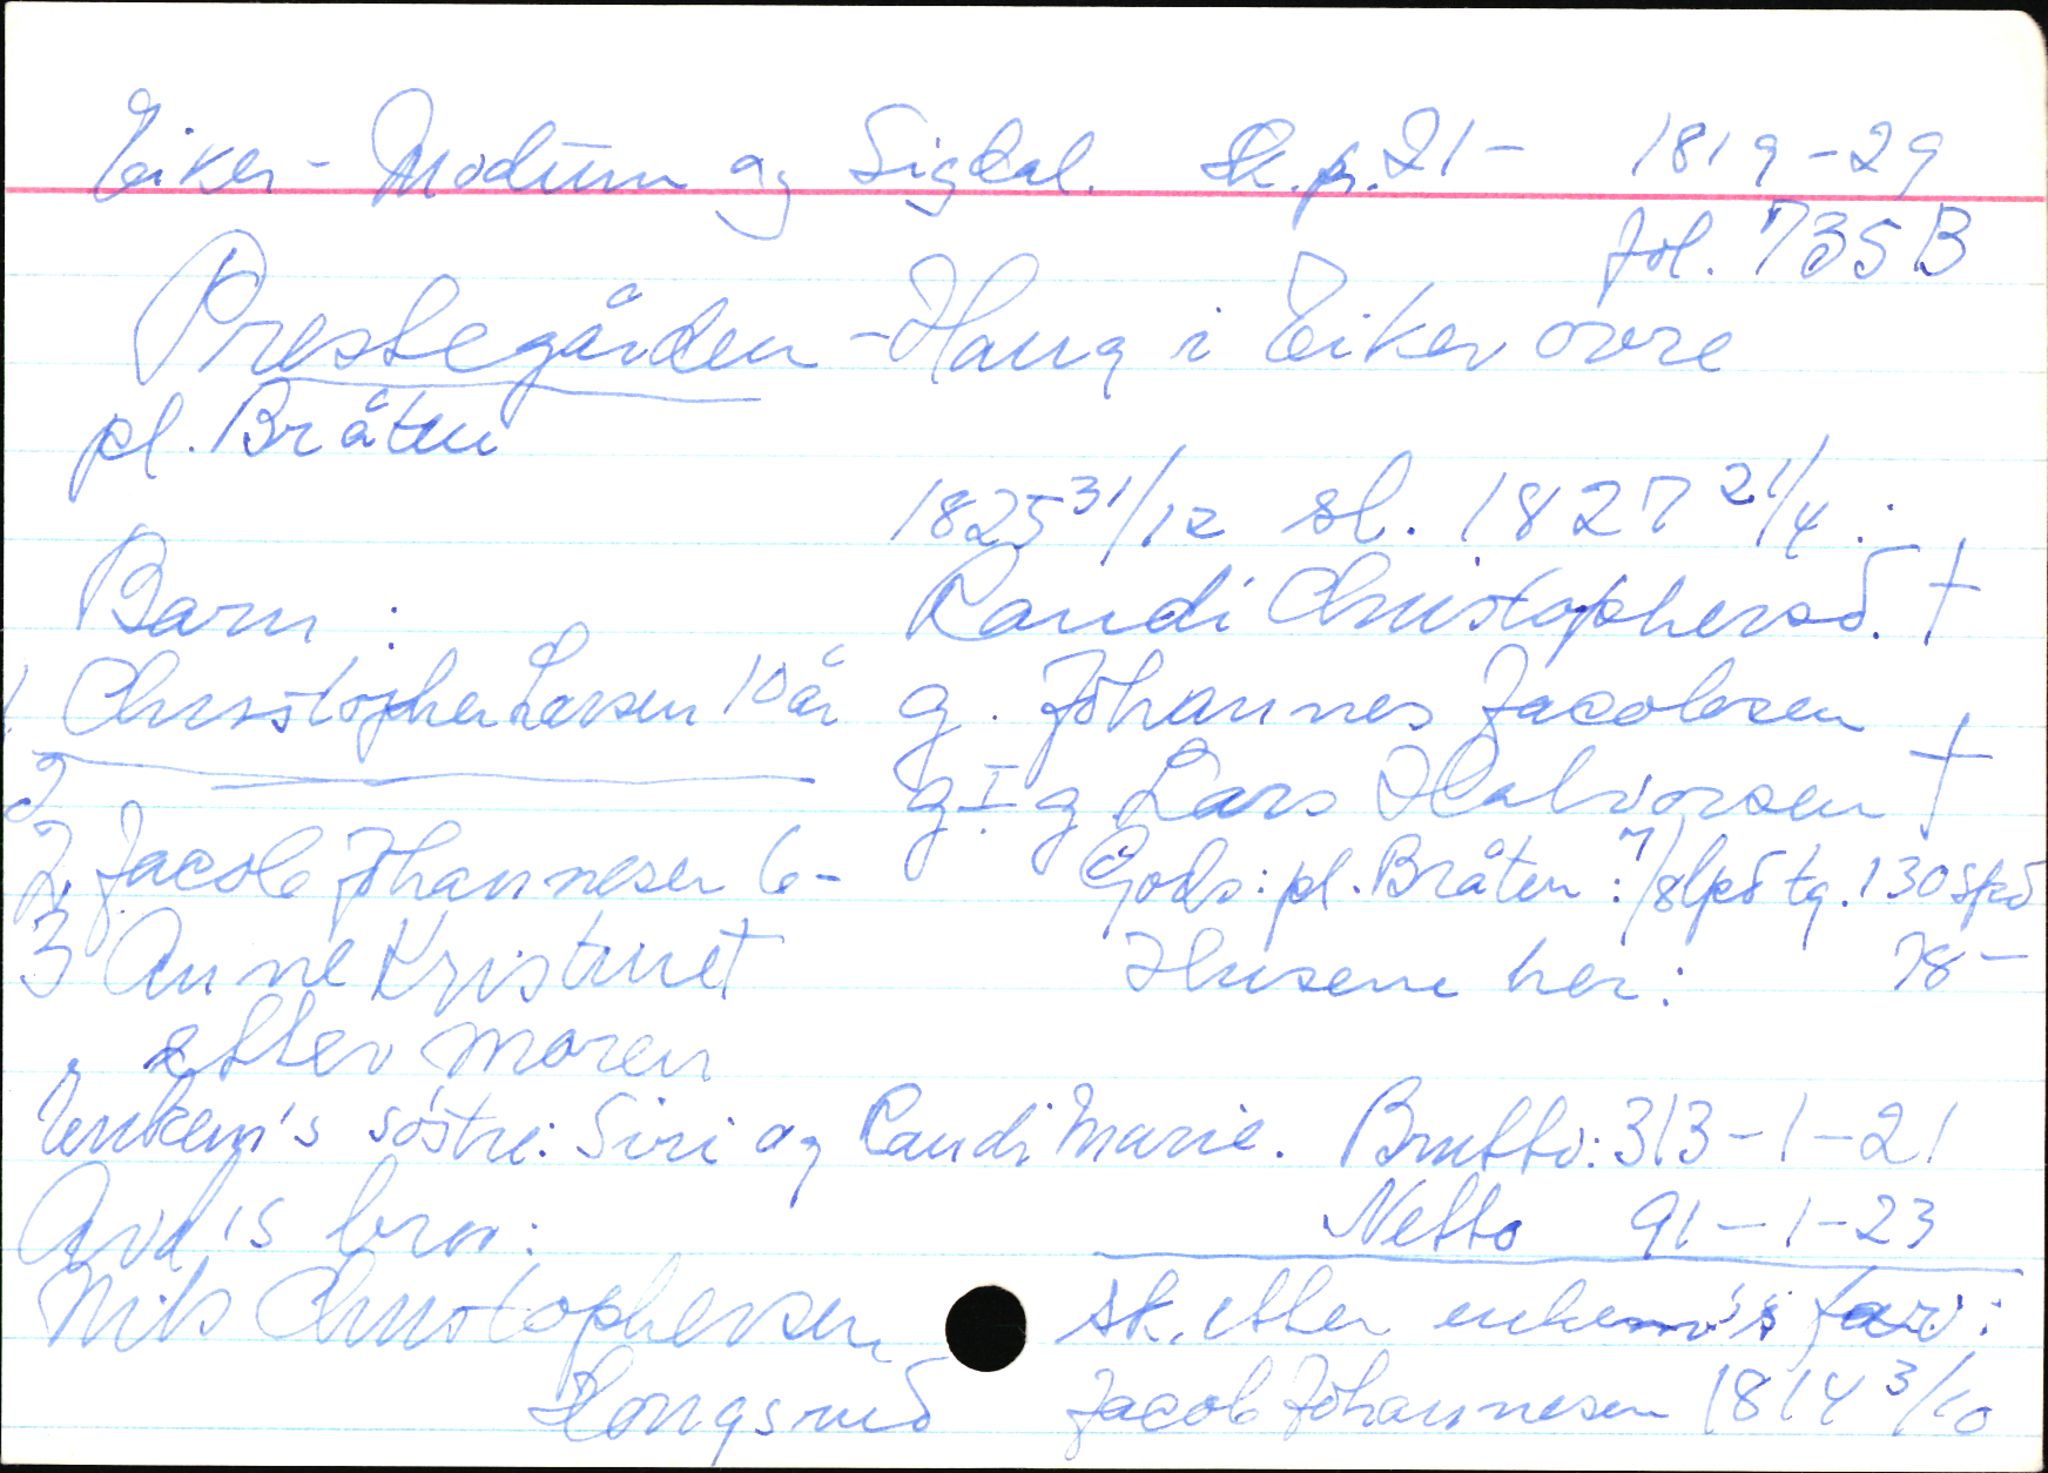 Eiker - Modum og Sigdal. Sk.pr. 21 - 1819-29
fol. 735 B
Prestegården - Haug i Eiker øvre
pl. Bråten
1825 31/12 sl. 1827 21/4 :
Barn : Randi Christophersd. †
1. Christopher Larsen 10 år g. Johannes Jacobsen
2 g. I g Lars Halvorsen †
2. Jacob Johannesen 6 - Gods: pl. Bråten : 7/8 lpd tg. 130 spd
3 Anne Kristine † Husene her: 78 -
etter moren
Enkem's søstre: Siri og Randi Marie. Brutto: 313-1-21
Avd's bror: Netto 91-1-23
Nils Christophersen sk. etter enkem's far:
Hongsrud Jacob Johannesen 1814 3/10